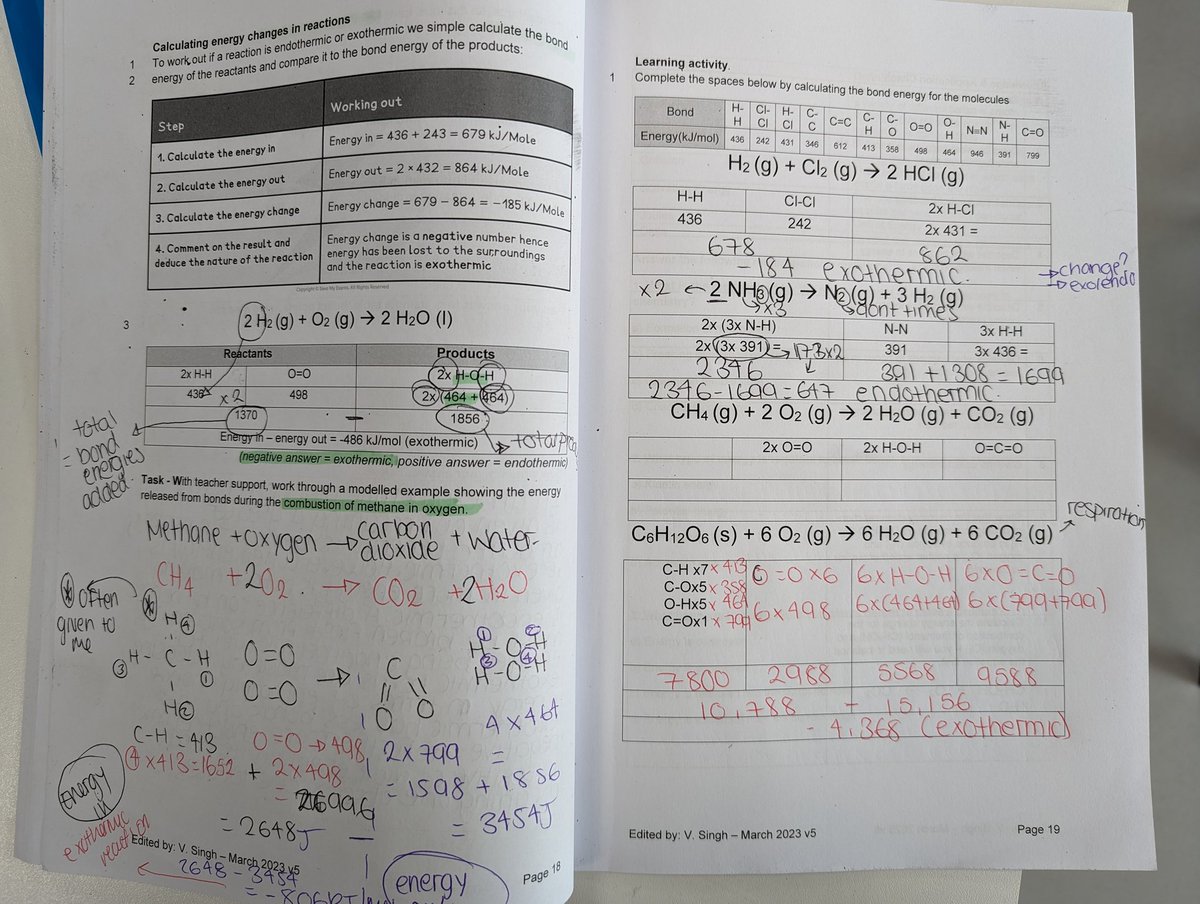 Calculating energy changes in reactions
1 To work out if a reaction is endothermic or exothermic we simple calculate the bond
2 energy of the reactants and compare it to the bond energy of the products:
Step Working out
1. Calculate the energy in Energy in = 436 + 243 = 679 kJ/Mole
2. Calculate the energy out Energy out = 2 × 432 = 864 kJ/Mole
3. Calculate the energy change Energy change = 679 – 864 = –185 kJ/Mole
4. Comment on the result and Energy change is a negative number hence
deduce the nature of the reaction energy has been lost to the surroundings
and the reaction is exothermic
Copyright © Save My Exams. All Rights Reserved
3 2 H₂ (g) + O₂ (g) → 2 H₂O (l)
Reactants Products
2x H-H O=O 2x H-O-H
436 x2 498 2x (464 + 464)
1370 – 1856
total = bond energies added.
total
Energy in – energy out = -486 kJ/mol (exothermic)
(negative answer = exothermic, positive answer = endothermic)
Task - With teacher support, work through a modelled example showing the energy
released from bonds during the combustion of methane in oxygen.
Methane + oxygen → carbon dioxide + water
CH₄ + 2O₂ → CO₂ + 2H₂O
* often given to me
*
H④
③ H - C - H ① O=O → C H-O-H ① ②
H② O=O O O H-O-H ③ ④
C-H = 413 O=O → 498 2 x 799 4 x 464
④ x 413 = 1652 + 2x498 = 1598 + 1856
= 996
= 2648J – = 3454J
Energy in
exothermic reaction
Edited by: V. Singh – March 2023 v5
2648 - 3454
Page 18
energy
Learning activity.
1 Complete the spaces below by calculating the bond energy for the molecules
Bond H-H Cl-Cl H-Cl C-C C=C C-H C-O O=O O-H N≡N N-H C=O
Energy(kJ/mol) 436 242 431 346 612 413 358 498 464 946 391 799
H₂ (g) + Cl₂ (g) → 2 HCl (g)
H-H Cl-Cl 2x H-Cl
436 242 2x 431 =
678 862
-184 exothermic.
→ change?
→ exo/endo
x2 ← 2 NH③(g) → N②(g) + 3 H₂ (g)
x3 dont times
2x (3x N-H) N-N 3x H-H
2x (3x 391) = → 1173x2 391 3x 436 =
2346 391 + 1308 = 1699
2346-1699 = 647 endothermic.
CH₄ (g) + 2 O₂ (g) → 2 H₂O (g) + CO₂ (g)
2x O=O 2x H-O-H O=C=O
respiration
C₆H₁₂O₆ (s) + 6 O₂ (g) → 6 H₂O (g) + 6 CO₂ (g)
C-H x7 x 413 O=O x6 6 x H-O-H 6 x O=C=O
C-Ox5 x 358 6 x 498 6x(464+464) 6x(799+799)
O-Hx5 x 464
C=Ox1 x 799
7800 2988 5568 9588
10,788 - 15,156
- 4,368 (exothermic)
Edited by: V. Singh – March 2023 v5
Page 19